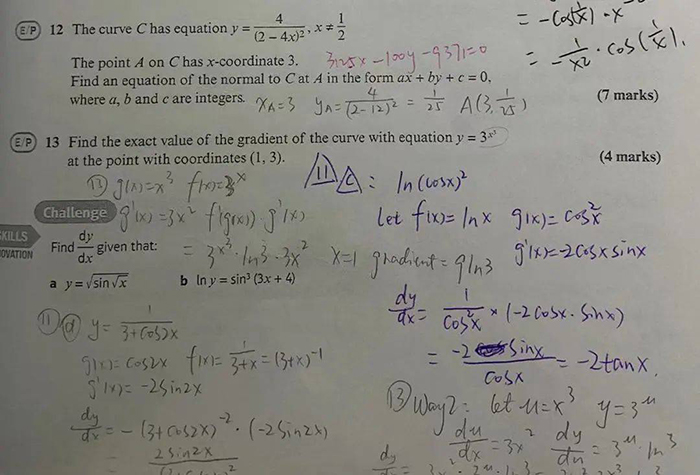 = -cos(1/x) · x
= -1/x² · cos(1/x).
E/P 12 The curve C has equation y = 4/(2 − 4x)², x ≠ 1/2
The point A on C has x-coordinate 3. 3125x -100y -9371=0
Find an equation of the normal to C at A in the form ax + by + c = 0,
where a, b and c are integers. x_A=3 y_A= 4/(2-12)² = 1/25 A(3, 1/25) (7 marks)
E/P 13 Find the exact value of the gradient of the curve with equation y = 3^x³
at the point with coordinates (1, 3). (4 marks)
⑬ g(x)=x³ f(x)=3^x
11 C : ln(cosx)²
Challenge g'(x)=3x² f'(g(x))·g'(x)
let f(x)= lnx g(x)= cos²x
SKILLS
OVATION
Find dy/dx given that:
= 3^x³ · ln3 · 3x² x=1 gradient = 9ln3
g'(x)=-2cosx sinx
a y = √sin√x b ln y = sin³ (3x + 4)
dy/dx = 1/cos²x × (-2cosx · sinx)
= -2 sinx/cosx = -2tanx.
⑪ⓓ y = 1/3+cos2x
g(x)= cos2x f(x)= 1/3+x = (3+x)^-1
g'(x)= -2sin2x
dy/dx = -(3+cos2x)^-2 · (-2sin2x)
= 2sin2x
⑬ Way2: let u=x³ y=3^u
du/dx = 3x² dy/du = 3^u · ln3